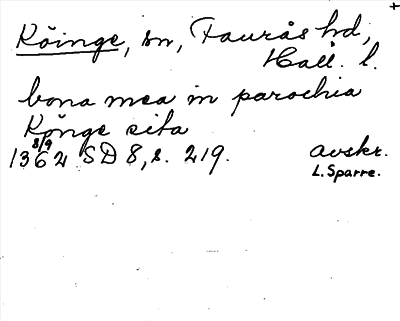 +
Köinge, sn, Faurås hd,
Hall. l.
bona mea in parochia
Könge sita
8/9
1362 SD 8, s. 219. avskr.
L. Sparre.